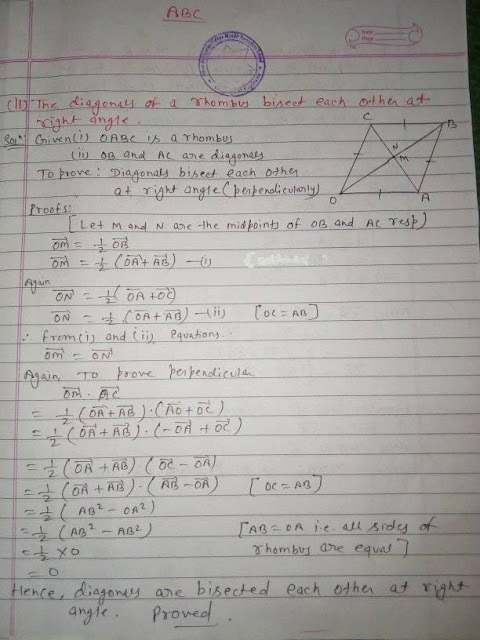 ABC
(11) The diagonals of a rhombus bisect each other at
right angle.
Solⁿ: Given (i) OABC is a rhombus
(ii) OB and AC are diagonals
To prove: Diagonals bisect each other
at right angle (perpendicularly)
C B N M O A
Proofs:
[Let M and N are the midpoints of OB and AC resp)
$\overrightarrow{OM} = \frac{1}{2} \overrightarrow{OB}$
$\overrightarrow{OM} = \frac{1}{2} (\overrightarrow{OA} + \overrightarrow{AB})$ —(i)
Again
$\overrightarrow{ON} = \frac{1}{2} (\overrightarrow{OA} + \overrightarrow{OC})$
$\overrightarrow{ON} = \frac{1}{2} (\overrightarrow{OA} + \overrightarrow{AB})$ —(ii) [OC = AB]
∴ from (i) and (ii) equations.
$\overrightarrow{OM} = \overrightarrow{ON}$
Again, To prove perpendicular
$\overrightarrow{OM} \cdot \overrightarrow{AC}$
$= \frac{1}{2} (\overrightarrow{OA} + \overrightarrow{AB}) \cdot (\overrightarrow{AO} + \overrightarrow{OC})$
$= \frac{1}{2} (\overrightarrow{OA} + \overrightarrow{AB}) \cdot (-\overrightarrow{OA} + \overrightarrow{OC})$
$= \frac{1}{2} (\overrightarrow{OA} + \overrightarrow{AB}) \cdot (\overrightarrow{OC} - \overrightarrow{OA})$
$= \frac{1}{2} (\overrightarrow{OA} + \overrightarrow{AB}) \cdot (\overrightarrow{AB} - \overrightarrow{OA})$ [OC = AB]
$= \frac{1}{2} (AB^2 - OA^2)$
$= \frac{1}{2} (AB^2 - AB^2)$ [AB = OA i.e. all sides of
$= \frac{1}{2} \times 0$ rhombus are equal]
= 0
Hence, diagonals are bisected each other at right
angle. Proved.